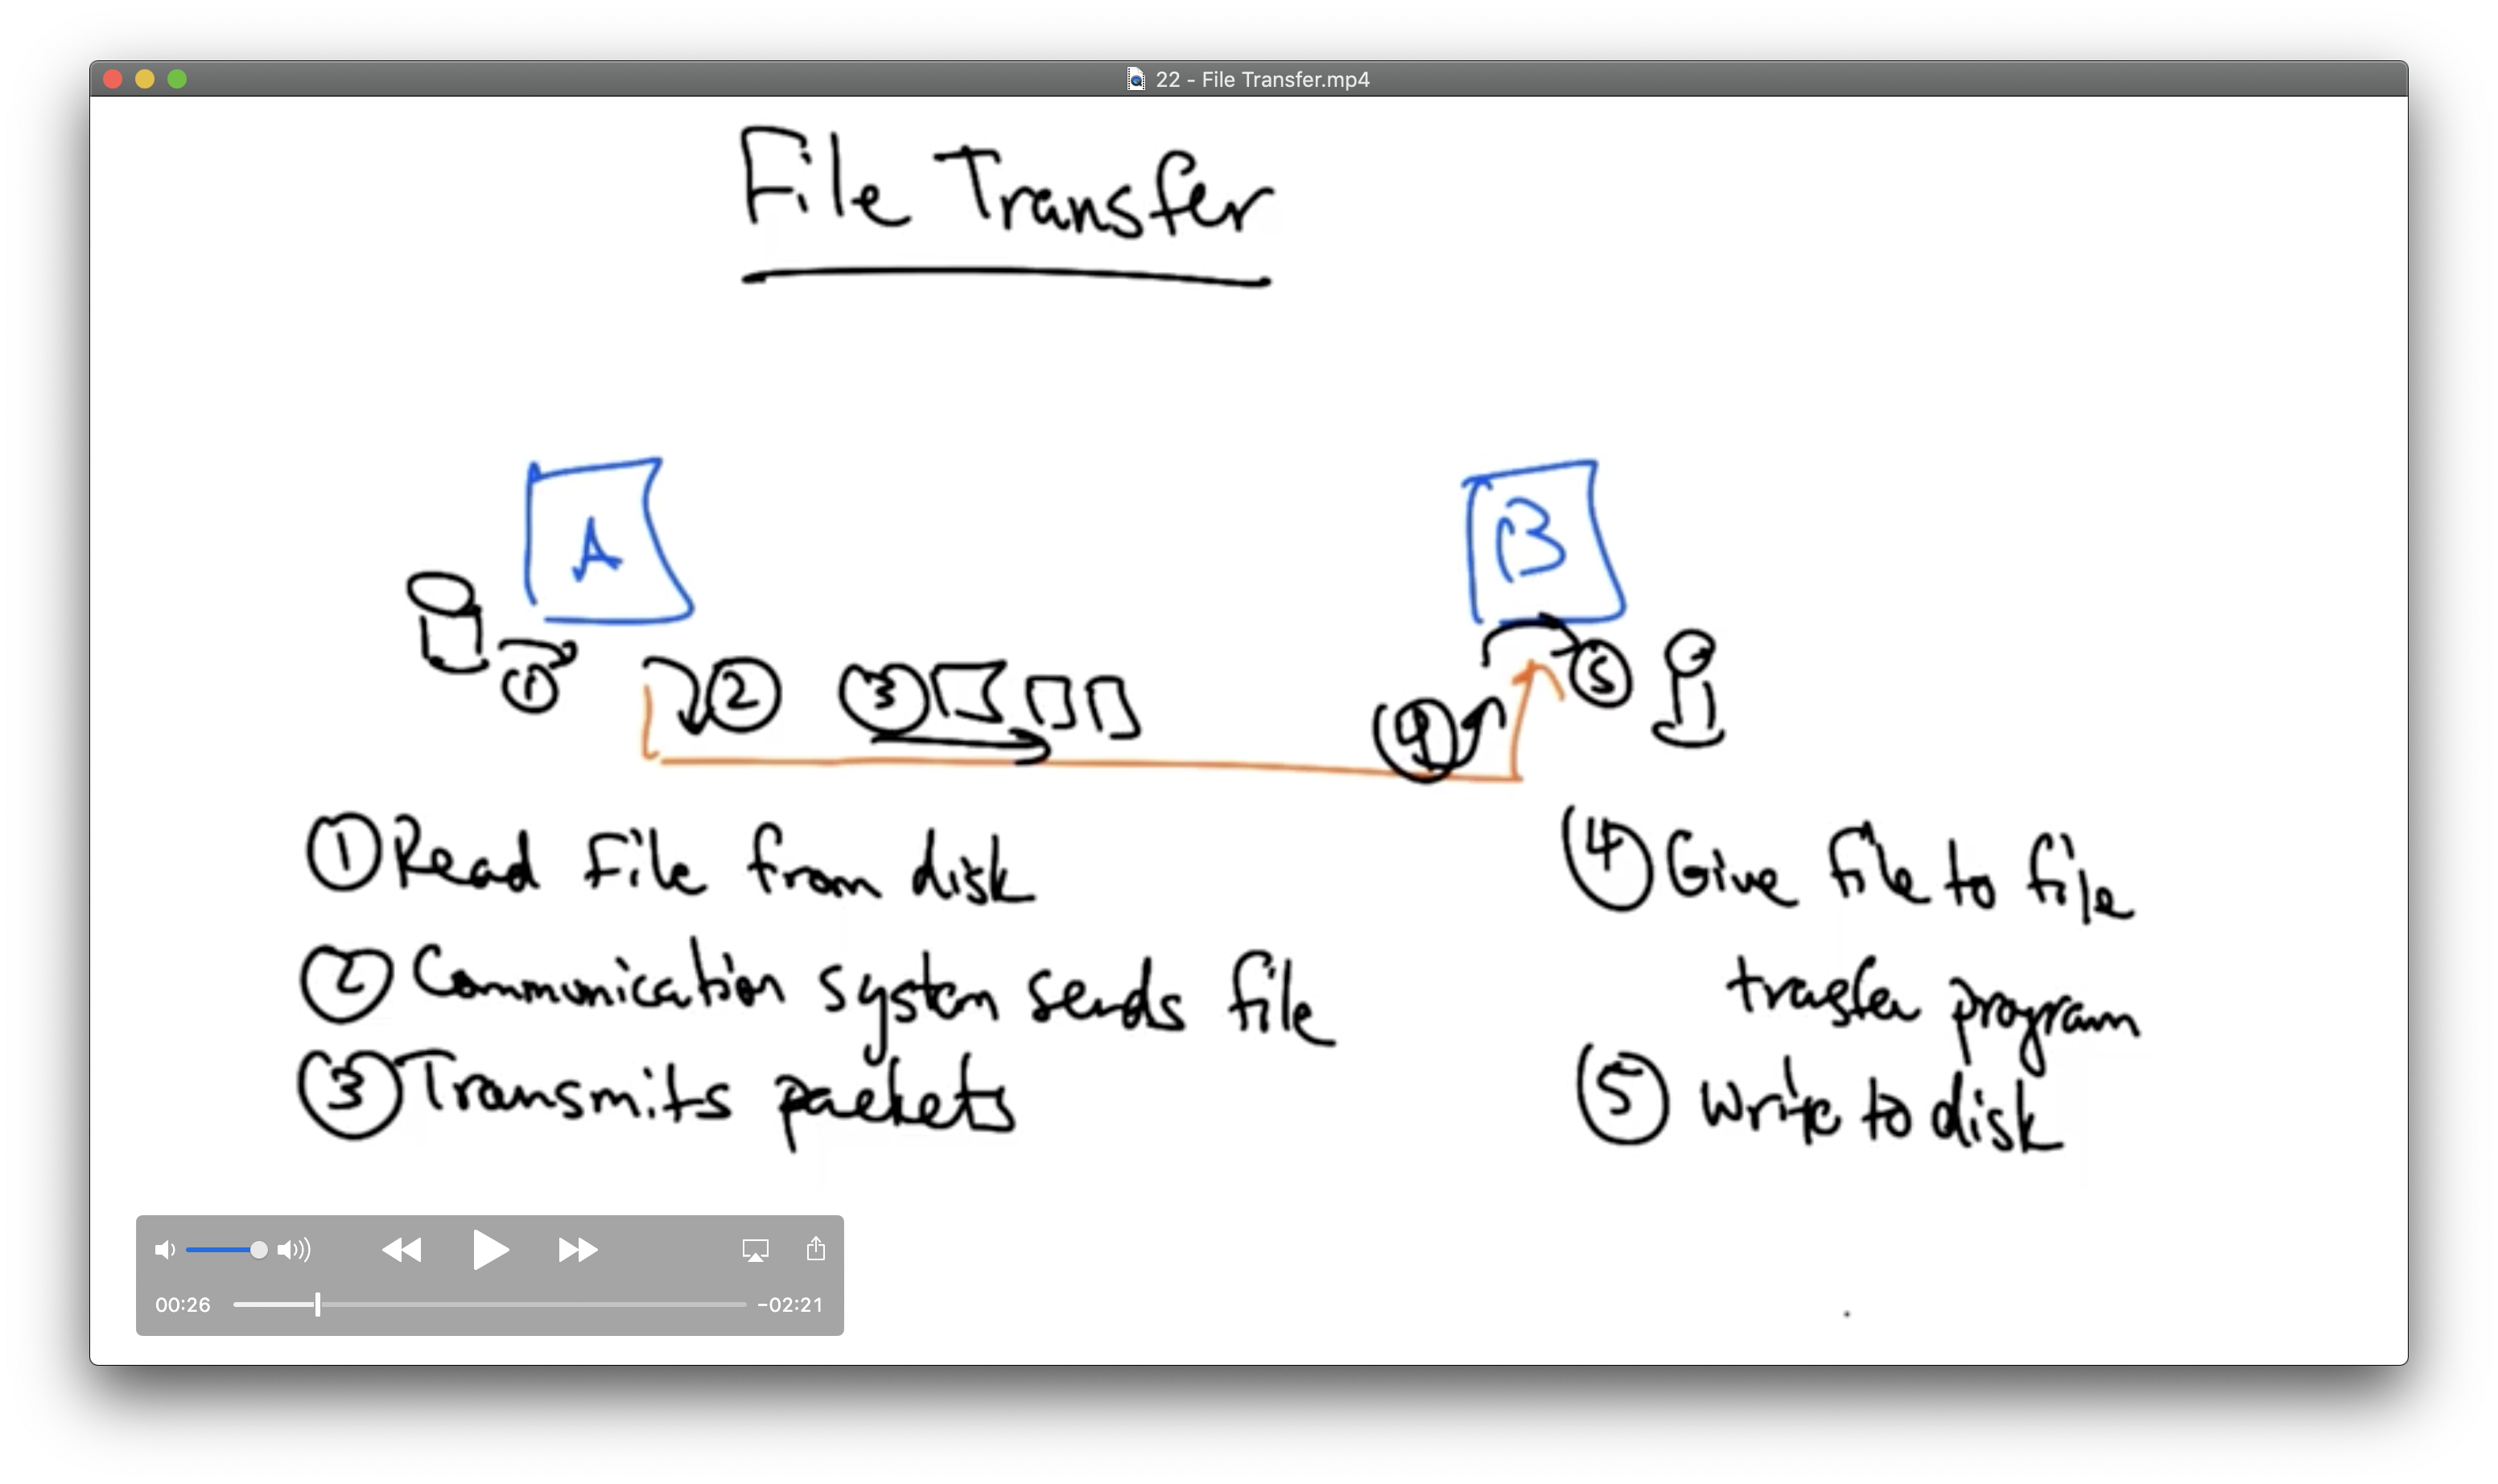 22 - File Transfer.mp4
File Transfer
A
B
① ② ③ ④ ⑤
① Read File from disk
② Communication system sends file
③ Transmits packets
④ Give file to file
trasfer program
⑤ Write to disk
00:26 -02:21